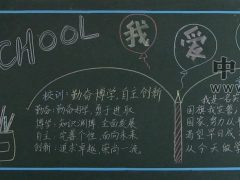 CHOOL
我 爱 中
校训：勤奋博学，自主创新
勤奋：勤奋好学，勇于进取
博学：知识渊博，全面发展
自主：完善个性，面向未来
创新：追求卓越，
我是一名
国家
国家，努力
希望早日成
从今天做